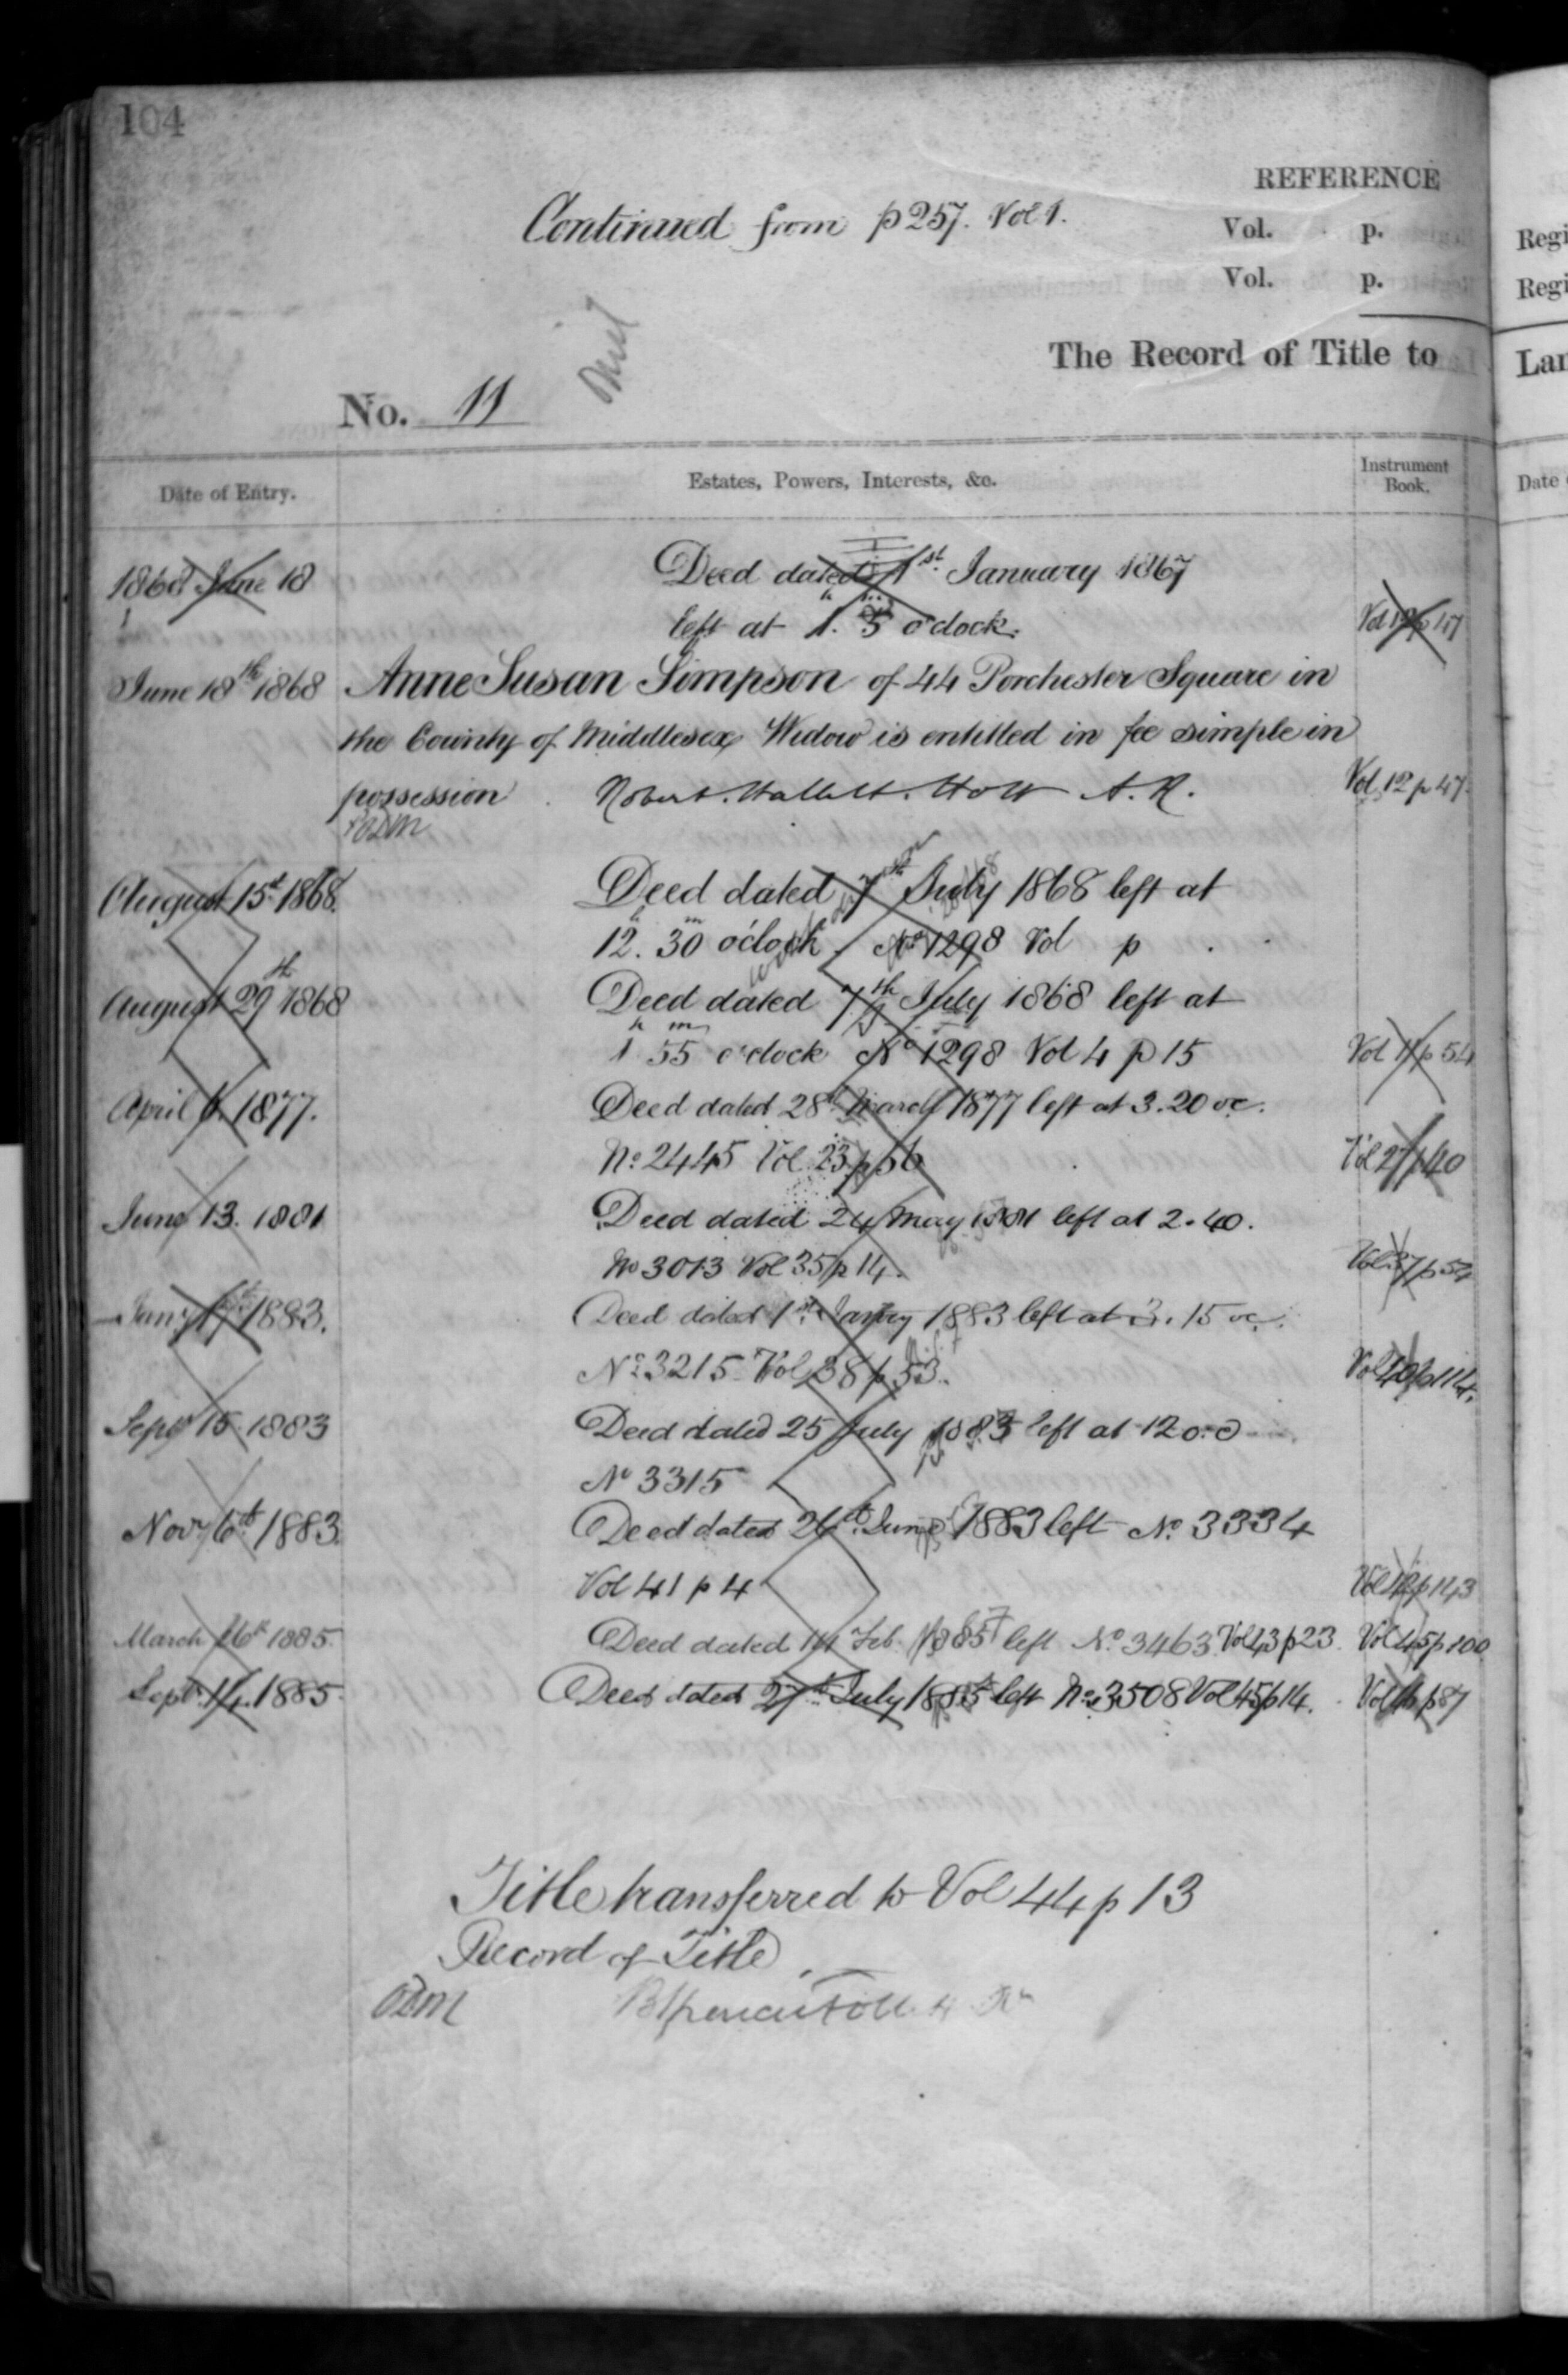 104
REFERENCE
Continued from p 257. Vol 1.
Vol. p.
Vol. p.
The Record of Title to
No. 11
Date of Entry. Estates, Powers, Interests, &c. Instrument Book.
1868 June 18 Deed dated 1st January 1867
left at 1. 5 o'clock. Vol 12 p 47
June 18th 1868 Anne Susan Simpson of 44 Porchester Square in
the County of Middlesex Widow is entitled in fee simple in
possession Robert Hallett Holt A. R. Vol 12 p 47
August 15th 1868 Deed dated 7th July 1868 left at
12h. 30m o'clock No 1298 Vol p
August 29th 1868 Deed dated 7th July 1868 left at
1h 55m o'clock No 1298 Vol 4 p 15 Vol 11 p 54
April 6. 1877. Deed dated 28th March 1877 left at 3.20 oc.
No. 2445 Vol 23 p 56 Vol 27 p 40
June 13. 1881 Deed dated 24 May 1881 left at 2.40.
No 3013 Vol 35 p 14. Vol 37 p 52
Jany 17th 1883. Deed dated 1st Jany 1883 left at 3.15 oc.
No. 3215 Vol 38 p 53. Vol 40 p 114.
Sept 15 1883 Deed dated 25 July 1883 left at 12 o.c
No 3315
Novr 6th 1883. Deed dated 26th June 1883 left No. 3334
Vol 41 p 4 Vol 42 p 143
March 26th 1885. Deed dated 14 Feb. 1885 left No. 3463 Vol 43 p 23. Vol 45 p 100
Sept. 14. 1885. Deed dated 27th July 1885 left No. 3508 Vol 45 p 14. Vol 46 p 87
Title transferred to Vol 44 p 13
Record of Title
Regi
Regi
Lan
Date